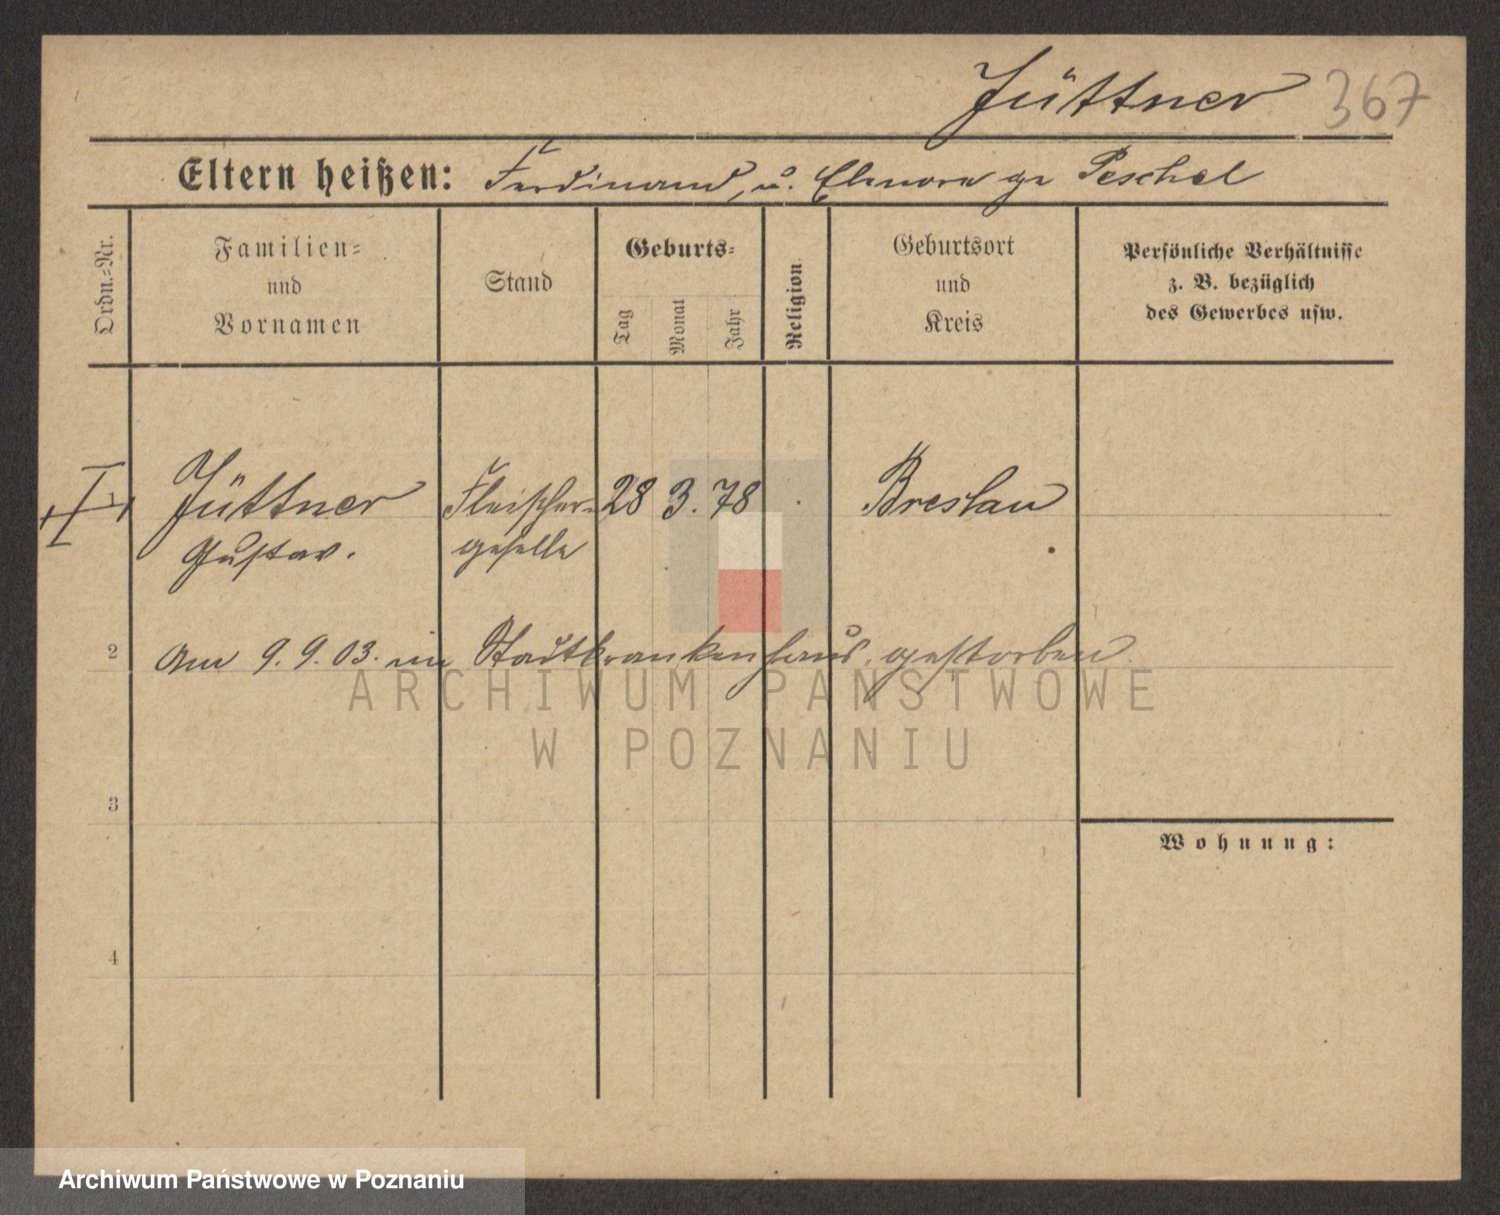 Jüttner 367
Eltern heißen: Ferdinand, u. Elenore ge Peschel
Ordn.=Nr.
Familien=
und
Vornamen
Stand
Geburts=
Tag
Monat
Jahr
Religion
Geburtsort
und
Kreis
Persönliche Verhältnisse
z. B. bezüglich
des Gewerbes usw.
1 Jüttner Fleischer= 28 3. 78 Breslau
Gustav. geselle
2 Am 9. 9. 03. im Stadtkrankenhaus gestorben
ARCHIWUM PAŃSTWOWE
W POZNANIU
3
Wohnung:
4
Archiwum Państwowe w Poznaniu